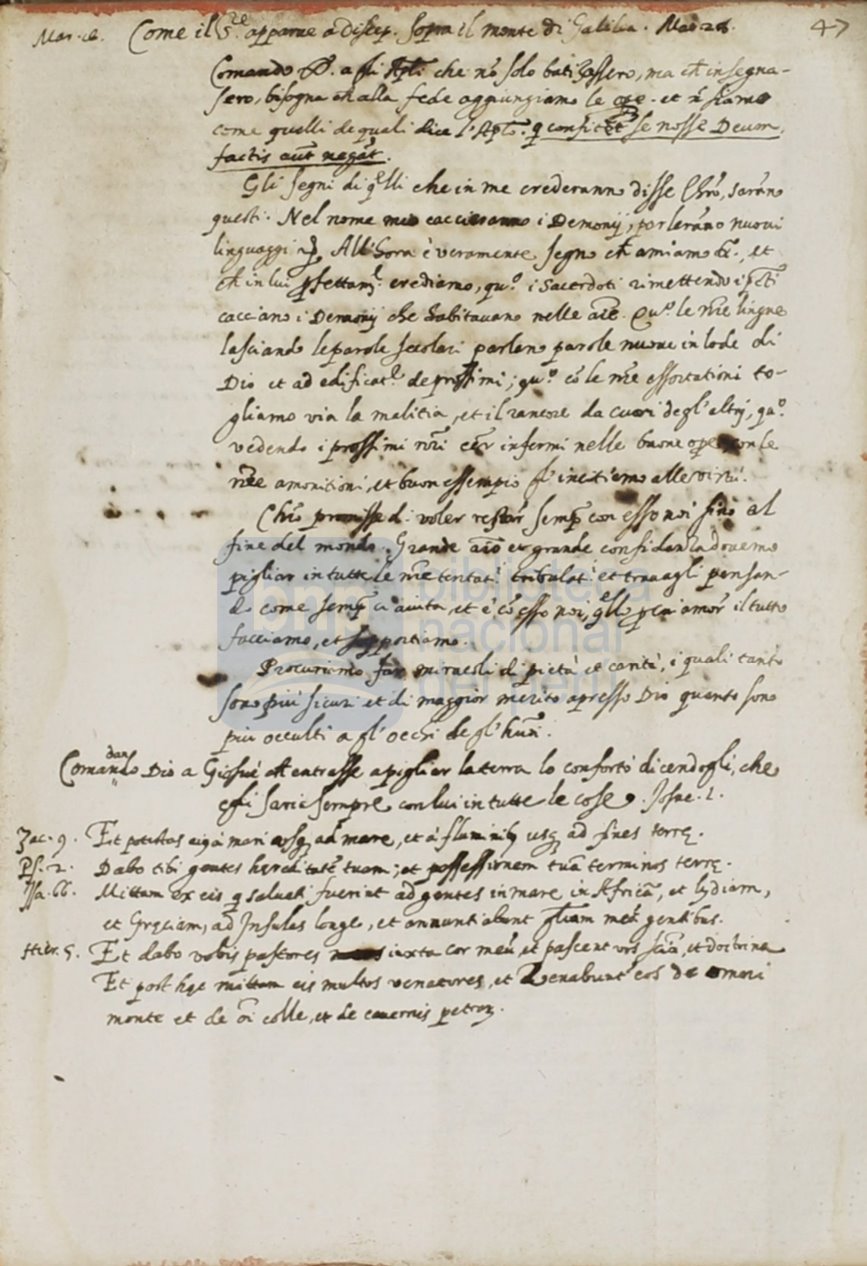 47
Mar. 16. Come il S.re apparue a discep. sopra il monte di Galilea. Mat. 28.
Comando a gli Apli che nō solo batizassero, ma ch' insegna-
sero, bisogna ch' alla fede aggiungiamo le ope. et ñ siamo
come quelli de quali dice l'Aplo. q confitēt se nosse Deum,
factis aut negāt.
Gli segni di q̃lli che in me crederanno disse Chrō, sarāno
questi. Nel nome mio caccieranno i Demonij, parlerāno nuoui
linguaggi All'hora è veramente segno ch' amiamo et
ch' in lui pfettam.te crediamo, qu.o i Sacerdoti rimettendo i pcti
cacciano i Demonij che habitauano nelle aīe. Qu.o le nr̄e lingue
lasciando le parole secolari parlano parole nuoue in lode di
Dio et ad edificat.e de prossimi; qu.o cō le nr̄e essortationi to-
gliamo via la malitia, et il rancore da cuori degl' altrj, qu.o
vedendo i prossimi nrī eēr infermi nelle buone opere con le
nr̄e amonitioni, et buon essempio gl' incitiamo alle virtù.
Chrō promisse di voler restar semp con esso noi sino al
fine del mondo. Grande aīo et grande confidanza douemo
pigliar in tutte le nr̄e tentat.i tribulat.i et trauagli pensan-
do come semp ci aiuta, et è cō esso noi, q̃llo p cui amor il tutto
facciamo, et supportiamo.
Procuriamo far miracoli di pietà et carità, i quali tanto
sono più sicuri et di maggior merito apresso Dio quanto sono
più occulti a gl' occhi de gl' huōi.
Comandando Dio a Giosuè ch' entrasse a pigliar la terra lo confortò dicendogli, che
egli saria sempre con lui in tutte le cose. Josue. 1.
Zac. 9. Et potestas eius a mari usq ad mare, et a fluminib usq ad fines terrę.
Ps. 2. Dabo tibi gentes hęreditatē tuam; et possessionem tuā terminos terrę.
Isa. 66. Mittam ex eis q saluati fuerint ad gentes in mare in Africā, et lydiam,
et Gręciam, ad Insulas longe, et annuntiabunt gliam meā gentibus.
Hier. 5. Et dabo vobis pastores iuxta cor meū, et pascent vos sciā, et doctrina
Et post hęc mittam eis multos venatores, et Venabunt eos de omni
monte et de oi colle, et de cauernis petrar.
biblioteca
nacional